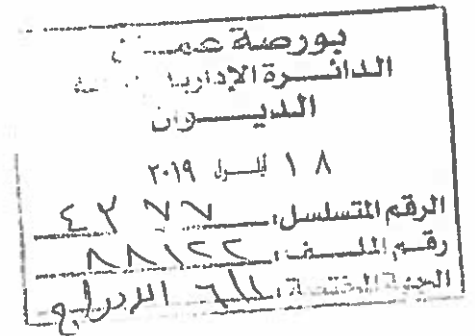 بورصة عمــــان
الدائــــرة الإدارية
الديـــــوان
١٨ أيلول ٢٠١٩
الرقم المتسلسل: ٤٢٧٧
رقم الملف: ٨٨١٢٢
الجهة المختصة: الإدراج